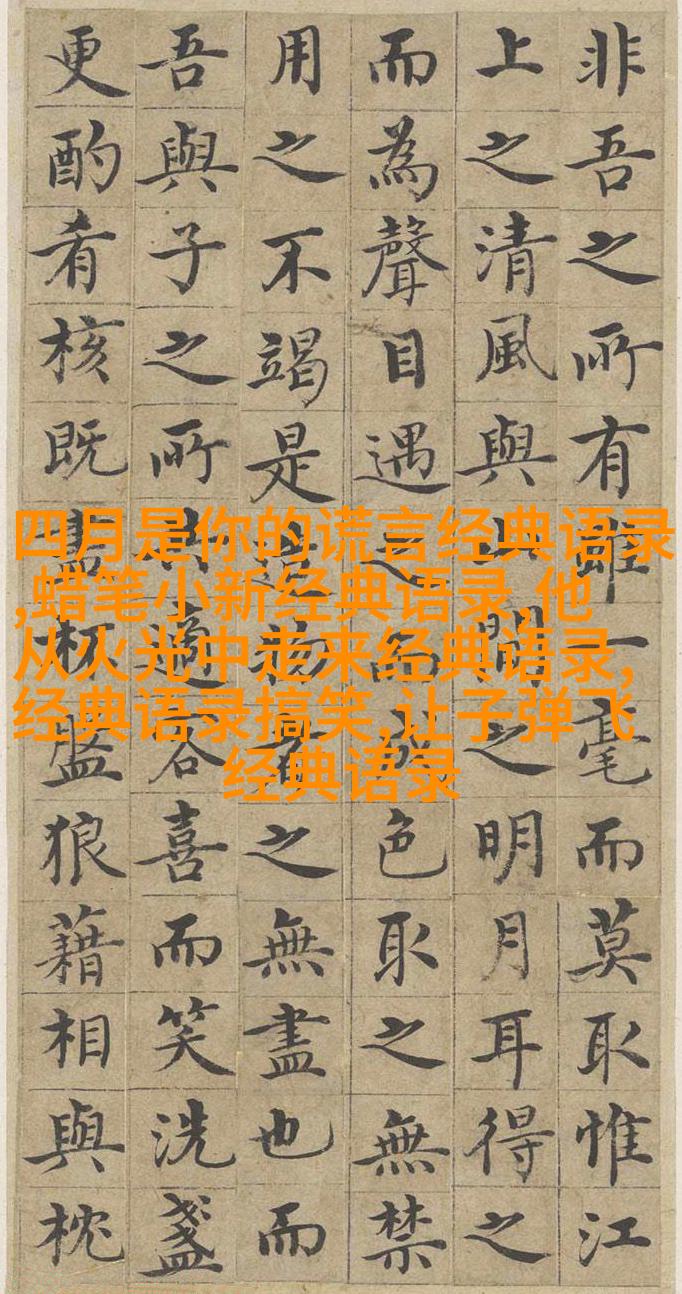 非吾之所有雖一毫而莫取惟江
上之清風與山間之明月耳得之
而為聲目遇之而成色取之無禁
用之不竭是造物者之無盡也而
吾與子之所共適客喜而笑洗盞
更酌肴核既盡杯盤狼藉相與枕
四月是你的谎言经典语录
,蜡笔小新经典语录,他
从火光中走来经典语录,
经典语录搞笑,让子弹飞
经典语录